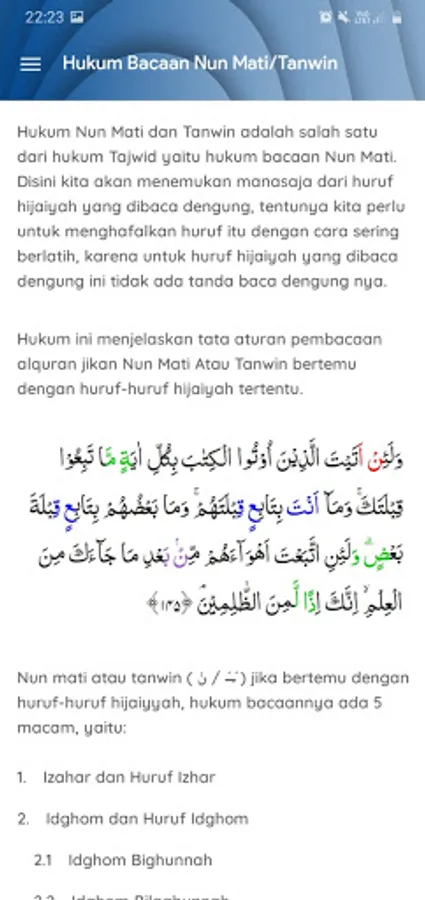 22:23
Hukum Bacaan Nun Mati/Tanwin
Hukum Nun Mati dan Tanwin adalah salah satu
dari hukum Tajwid yaitu hukum bacaan Nun Mati.
Disini kita akan menemukan manasaja dari huruf
hijaiyah yang dibaca dengung, tentunya kita perlu
untuk menghafalkan huruf itu dengan cara sering
berlatih, karena untuk huruf hijaiyah yang dibaca
dengung ini tidak ada tanda baca dengung nya.
Hukum ini menjelaskan tata aturan pembacaan
alquran jikan Nun Mati Atau Tanwin bertemu
dengan huruf-huruf hijaiyah tertentu.
وَلَىِٕنْ اَتَيْتَ الَّذِيْنَ اُوْتُوا الْكِتٰبَ بِكُلِّ اٰيَةٍ مَّا تَبِعُوْا
قِبْلَتَكَ ۚ وَمَآ اَنْتَ بِتَابِعٍ قِبْلَتَهُمْ ۚ وَمَا بَعْضُهُمْ بِتَابِعٍ قِبْلَةَ
بَعْضٍ ۗ وَلَىِٕنِ اتَّبَعْتَ اَهْوَاۤءَهُمْ مِّنْۢ بَعْدِ مَا جَاۤءَكَ مِنَ
الْعِلْمِ ۙ اِنَّكَ اِذًا لَّمِنَ الظّٰلِمِيْنَ ۘ ﴿١٤٥﴾
Nun mati atau tanwin ( ـًـٍـٌ / نْ ) jika bertemu dengan
huruf-huruf hijaiyyah, hukum bacaannya ada 5
macam, yaitu:
1. Izahar dan Huruf Izhar
2. Idghom dan Huruf Idghom
2.1 Idghom Bighunnah
2.2 Idghom Bilaghunnah